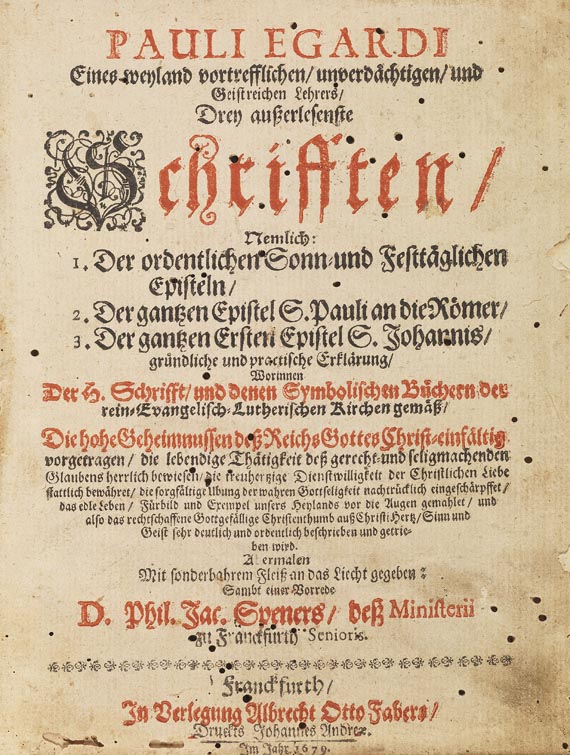 PAULI EGARDI
Eines weyland vortrefflichen/ unverdächtigen/ und
Geistreichen Lehrers/
Drey außerlesenste
Schrifften/
Nemlich:
1. Der ordentlichen Sonn- und Festtäglichen
Episteln/
2. Der gantzen Epistel S. Pauli an die Römer/
3. Der gantzen Ersten Epistel S. Johannis/
gründliche und practische Erklärung/
Worinnen
Der H. Schrifft/ und denen Symbolischen Büchern der
rein-Evangelisch-Lutherischen Kirchen gemäß/
Die hohe Geheimnussen deß Reichs Gottes Christ-einfältig
vorgetragen/ die lebendige Thätigkeit deß gerecht- und seligmachenden
Glaubens herrlich bewiesen/ die treuhertzige Dienstwilligkeit der Christlichen Liebe
stattlich bewähret/ die sorgfältige Ubung der wahren Gottseligkeit nachtrücklich eingeschärpffet/
das edle Leben/ Fürbild und Exempel unsers Heylands vor die Augen gemahlet/ und
also das rechtschaffene Gottgefällige Christenthumb auß Christi Hertz/ Sinn und
Geist sehr deutlich und ordentlich beschrieben und getrie-
ben wird.
Abermalen
Mit sonderbahrem Fleiß an das Liecht gegeben:
Sambt einer Vorrede
D. Phil. Jac. Speners/ deß Ministerii
zu Franckfurth Senioris.
Franckfurth/
In Verlegung Albrecht Otto Fabers/
Druckts Johannes Andreæ.
Im Jahr 1679.